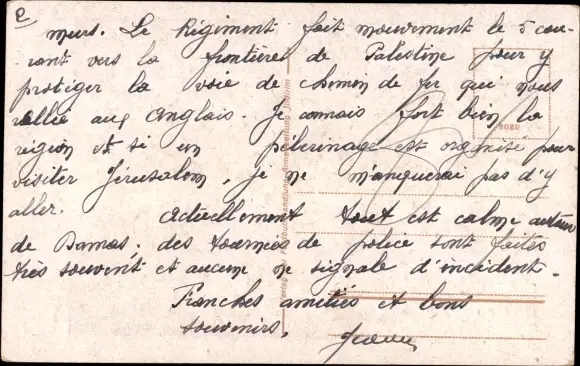 2
murs. Le Régiment fait mouvement le 5 cou-
rant vers la frontière de Palestine pour y
protéger la voie de chemin de fer qui nous
rallie aux Anglais. Je connais fort bien la
région et si un pélerinage est organisé pour
visiter Jérusalem, je ne manquerai pas d'y
aller. Actuellement tout est calme autour
de Damas, des tournées de police sont faites
très souvent et aucune ne signale d'incident.
Franches amitiés et bons
souvenirs.